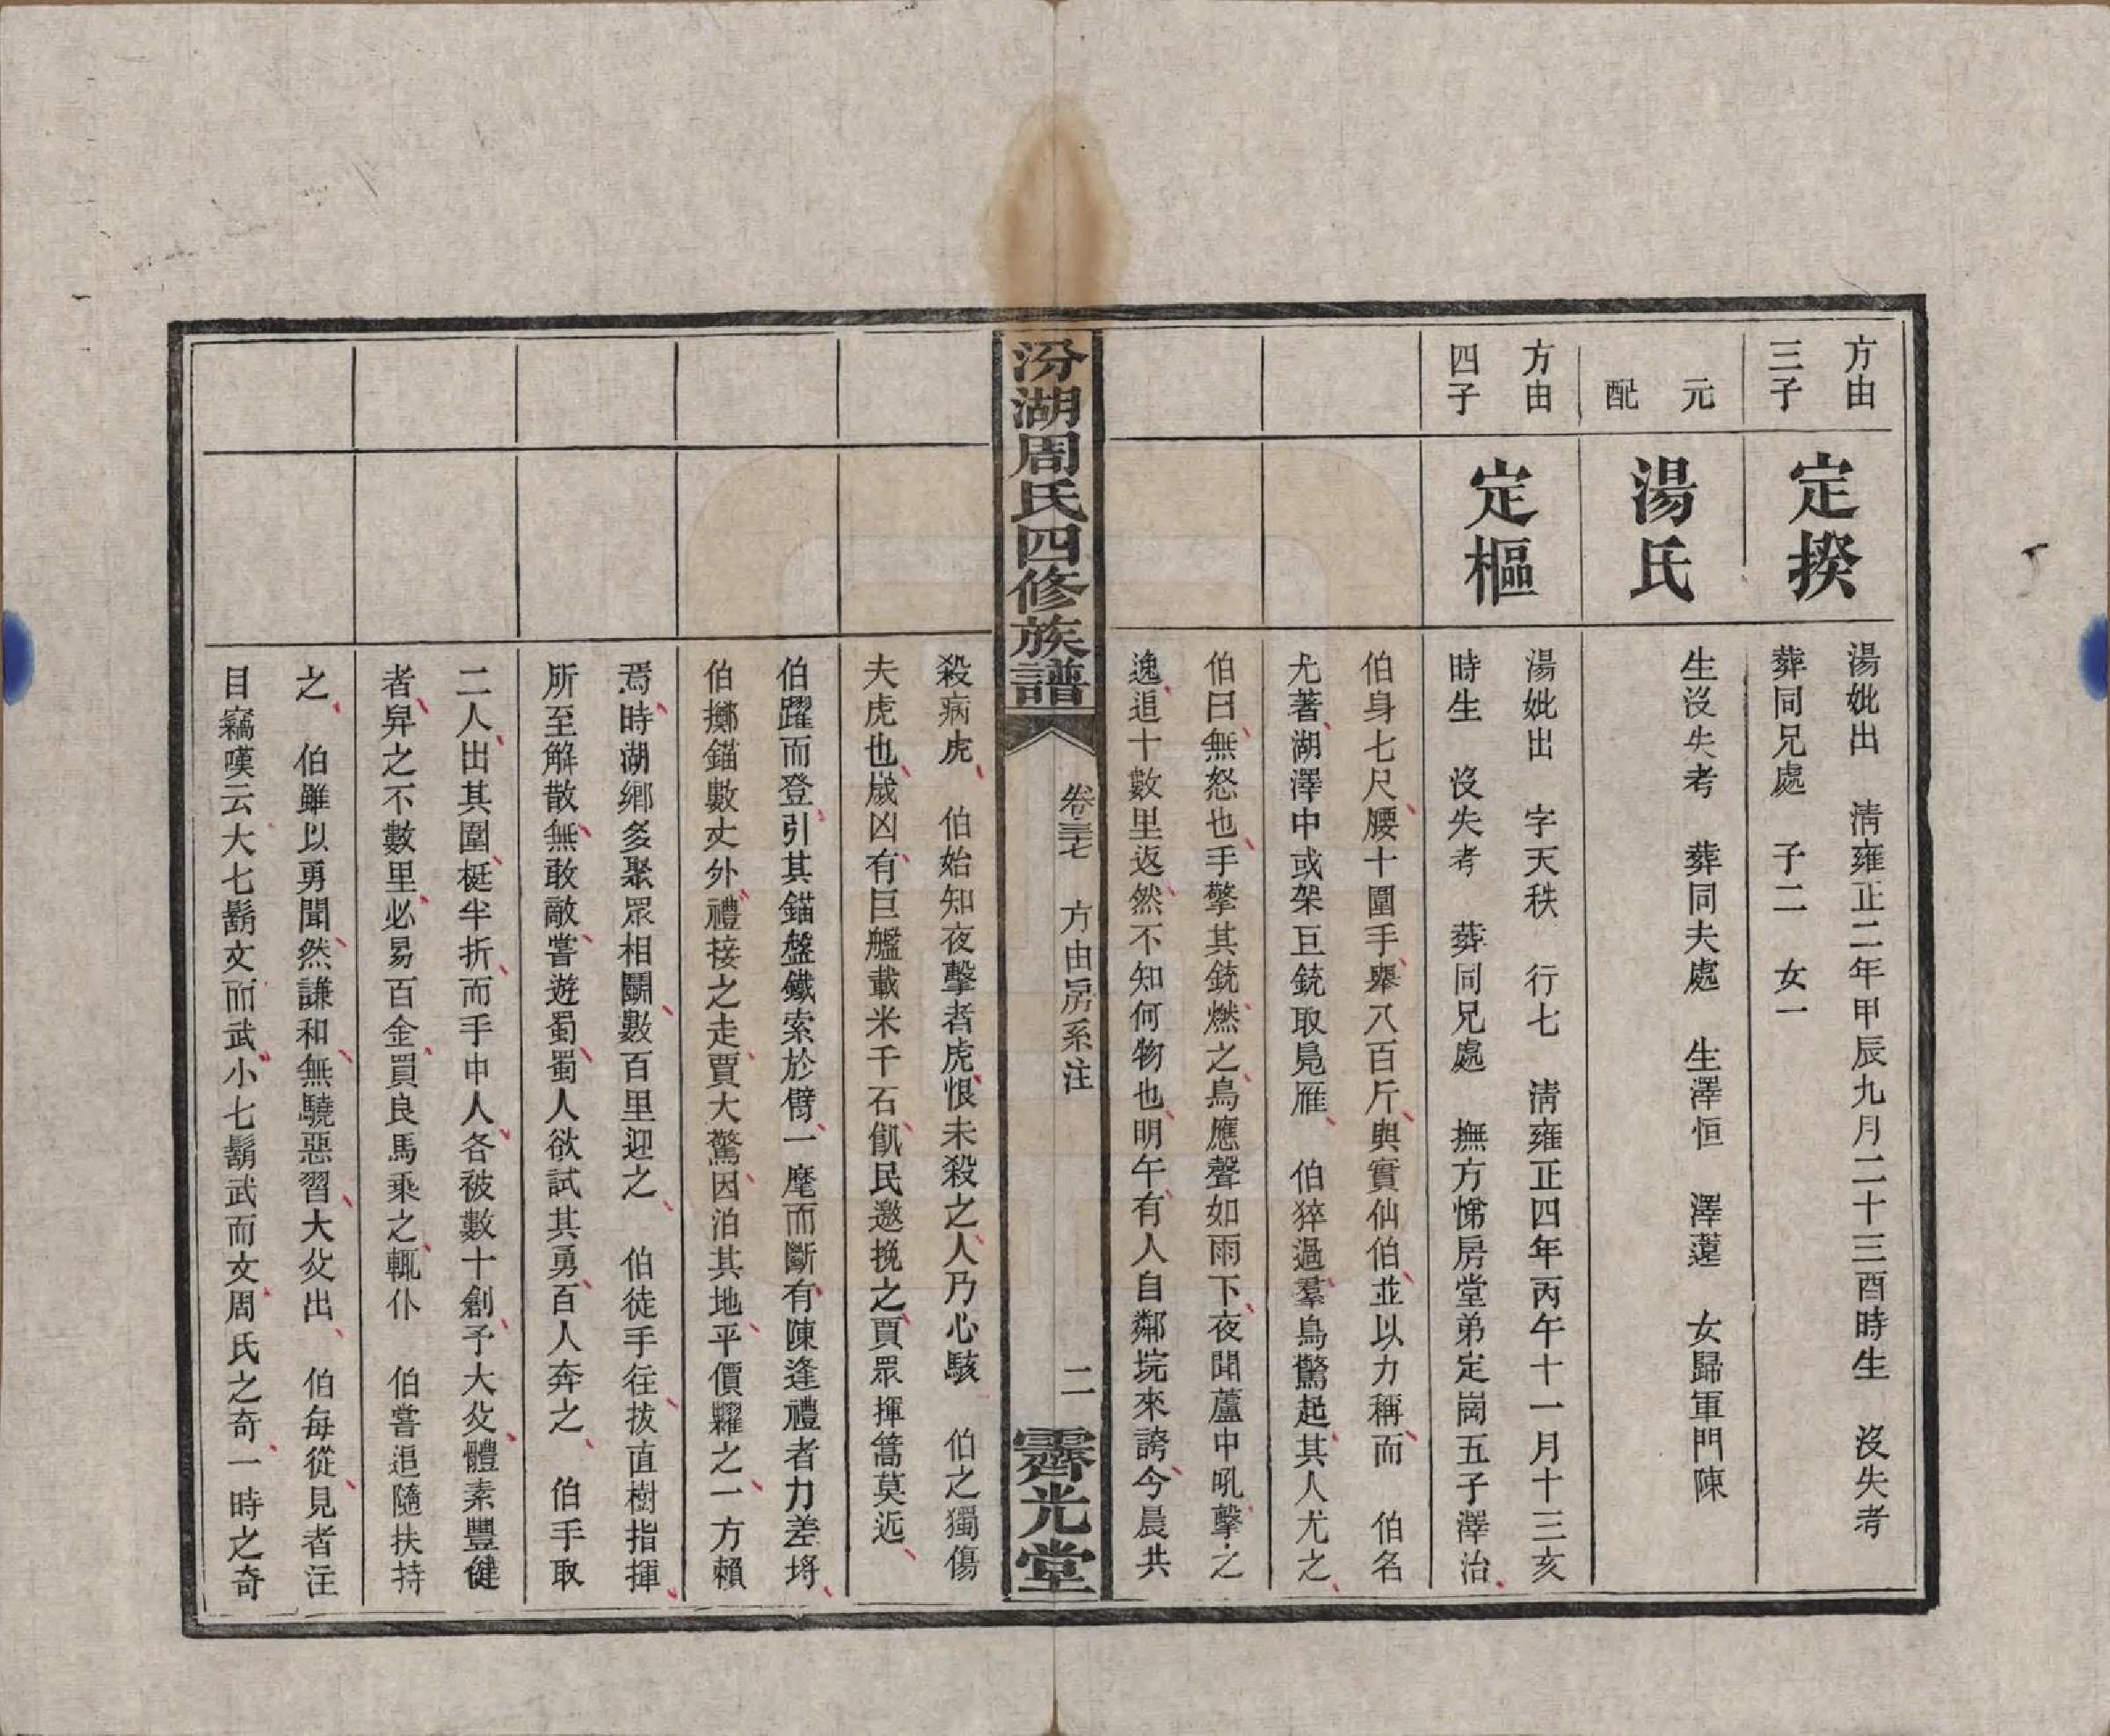 方由
三子
定揆
湯妣出　清雍正二年甲辰九月二十三酉時生　沒失考
葬同兄處　子二　女一
元
配
湯氏
生沒失考　葬同夫處　生澤恒　澤薳　女歸軍門陳
方由
四子
定樞
湯妣出　字天秩　行七　清雍正四年丙午十一月十三亥
時生　沒失考　葬同兄處　撫方悌房堂弟定崗五子澤治
伯身七尺腰十圍手舉八百斤與實仙伯並以力稱而　伯名
尤著湖澤中或架巨銃取鳧雁　伯猝過羣鳥驚起其人尤之
伯曰無怒也手擎其銃燃之鳥應聲如雨下夜聞蘆中吼擊之
逸追十數里返然不知何物也明午有人自鄰垸來誇今晨共
汾湖周氏四修族譜
卷三七　方由房系注
二
霽光堂
殺病虎　伯始知夜擊者虎恨未殺之人乃心駭　伯之獨傷
夫虎也歲凶有巨艦載米千石飢民邀挽之賈眾揮篙莫近
伯躍而登引其錨盤鐵索於臂一麾而斷有陳逢禮者力差埒
伯擲錨數丈外禮接之走賈大驚因泊其地平價糶之一方賴
焉時湖鄉多聚眾相鬬數百里迎之　伯徒手往拔直樹指揮
所至解散無敢敵嘗遊蜀蜀人欲試其勇百人奔之　伯手取
二人出其圍梃半折而手中人各被數十創予大父體素豐健
者舁之不數里必易百金買良馬乘之輒仆　伯嘗追隨扶持
之　伯雖以勇聞然謙和無驍惡習大父出　伯每從見者注
目竊嘆云大七鬍文而武小七鬍武而文周氏之奇一時之奇